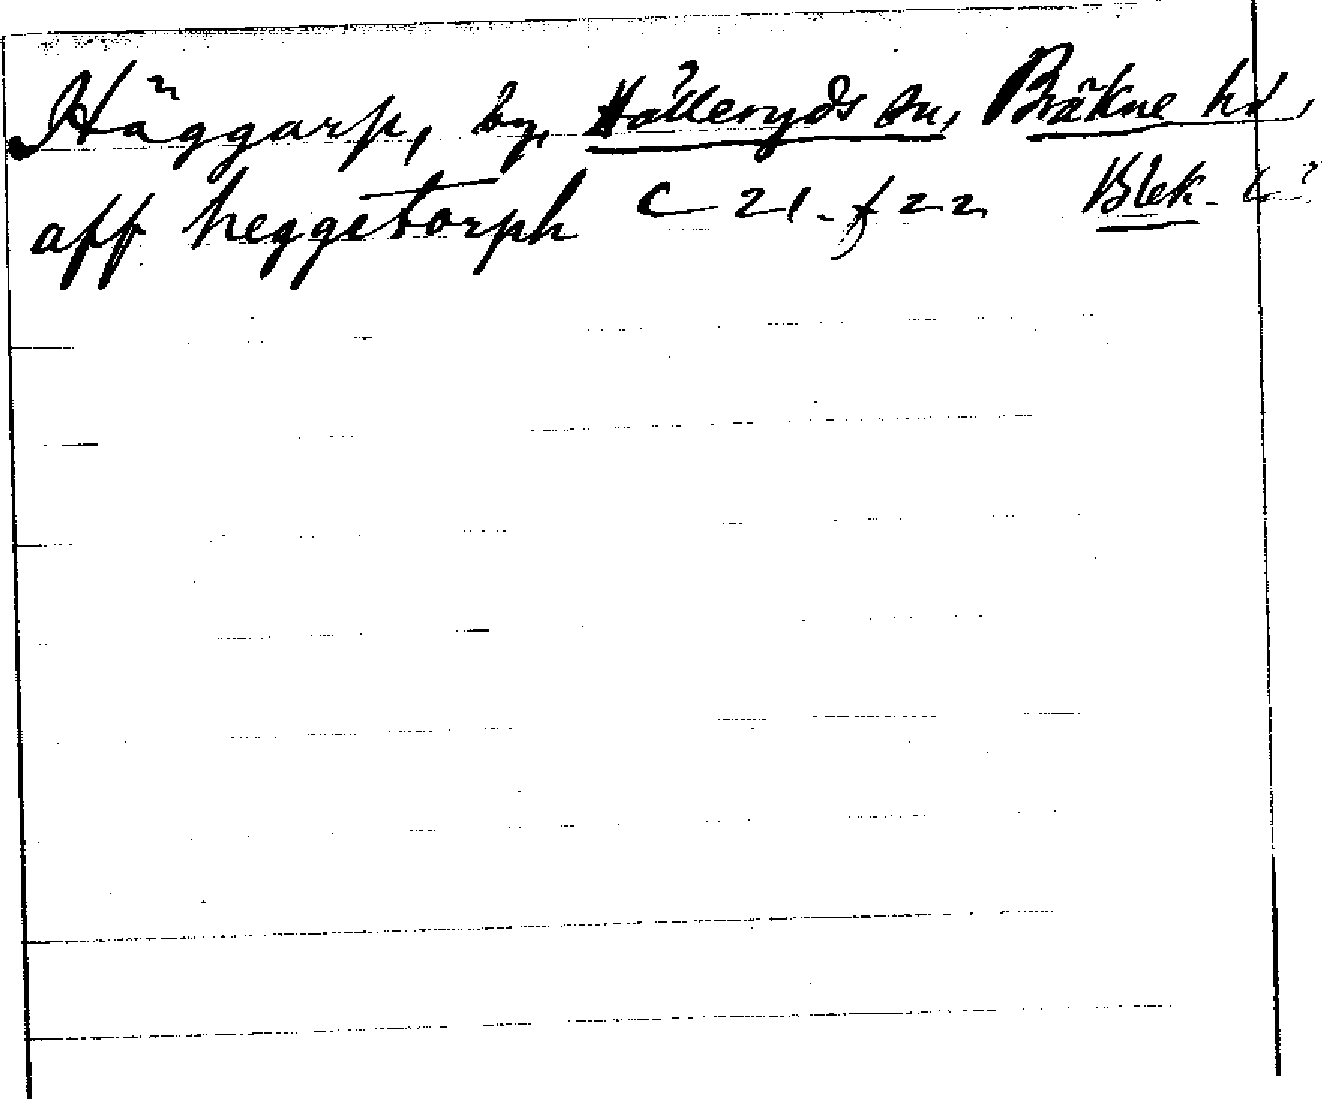 Häggarp, by, Hälleryds sn, Bräkne hd,
aff heggetorph C 21. f 22 Blek.